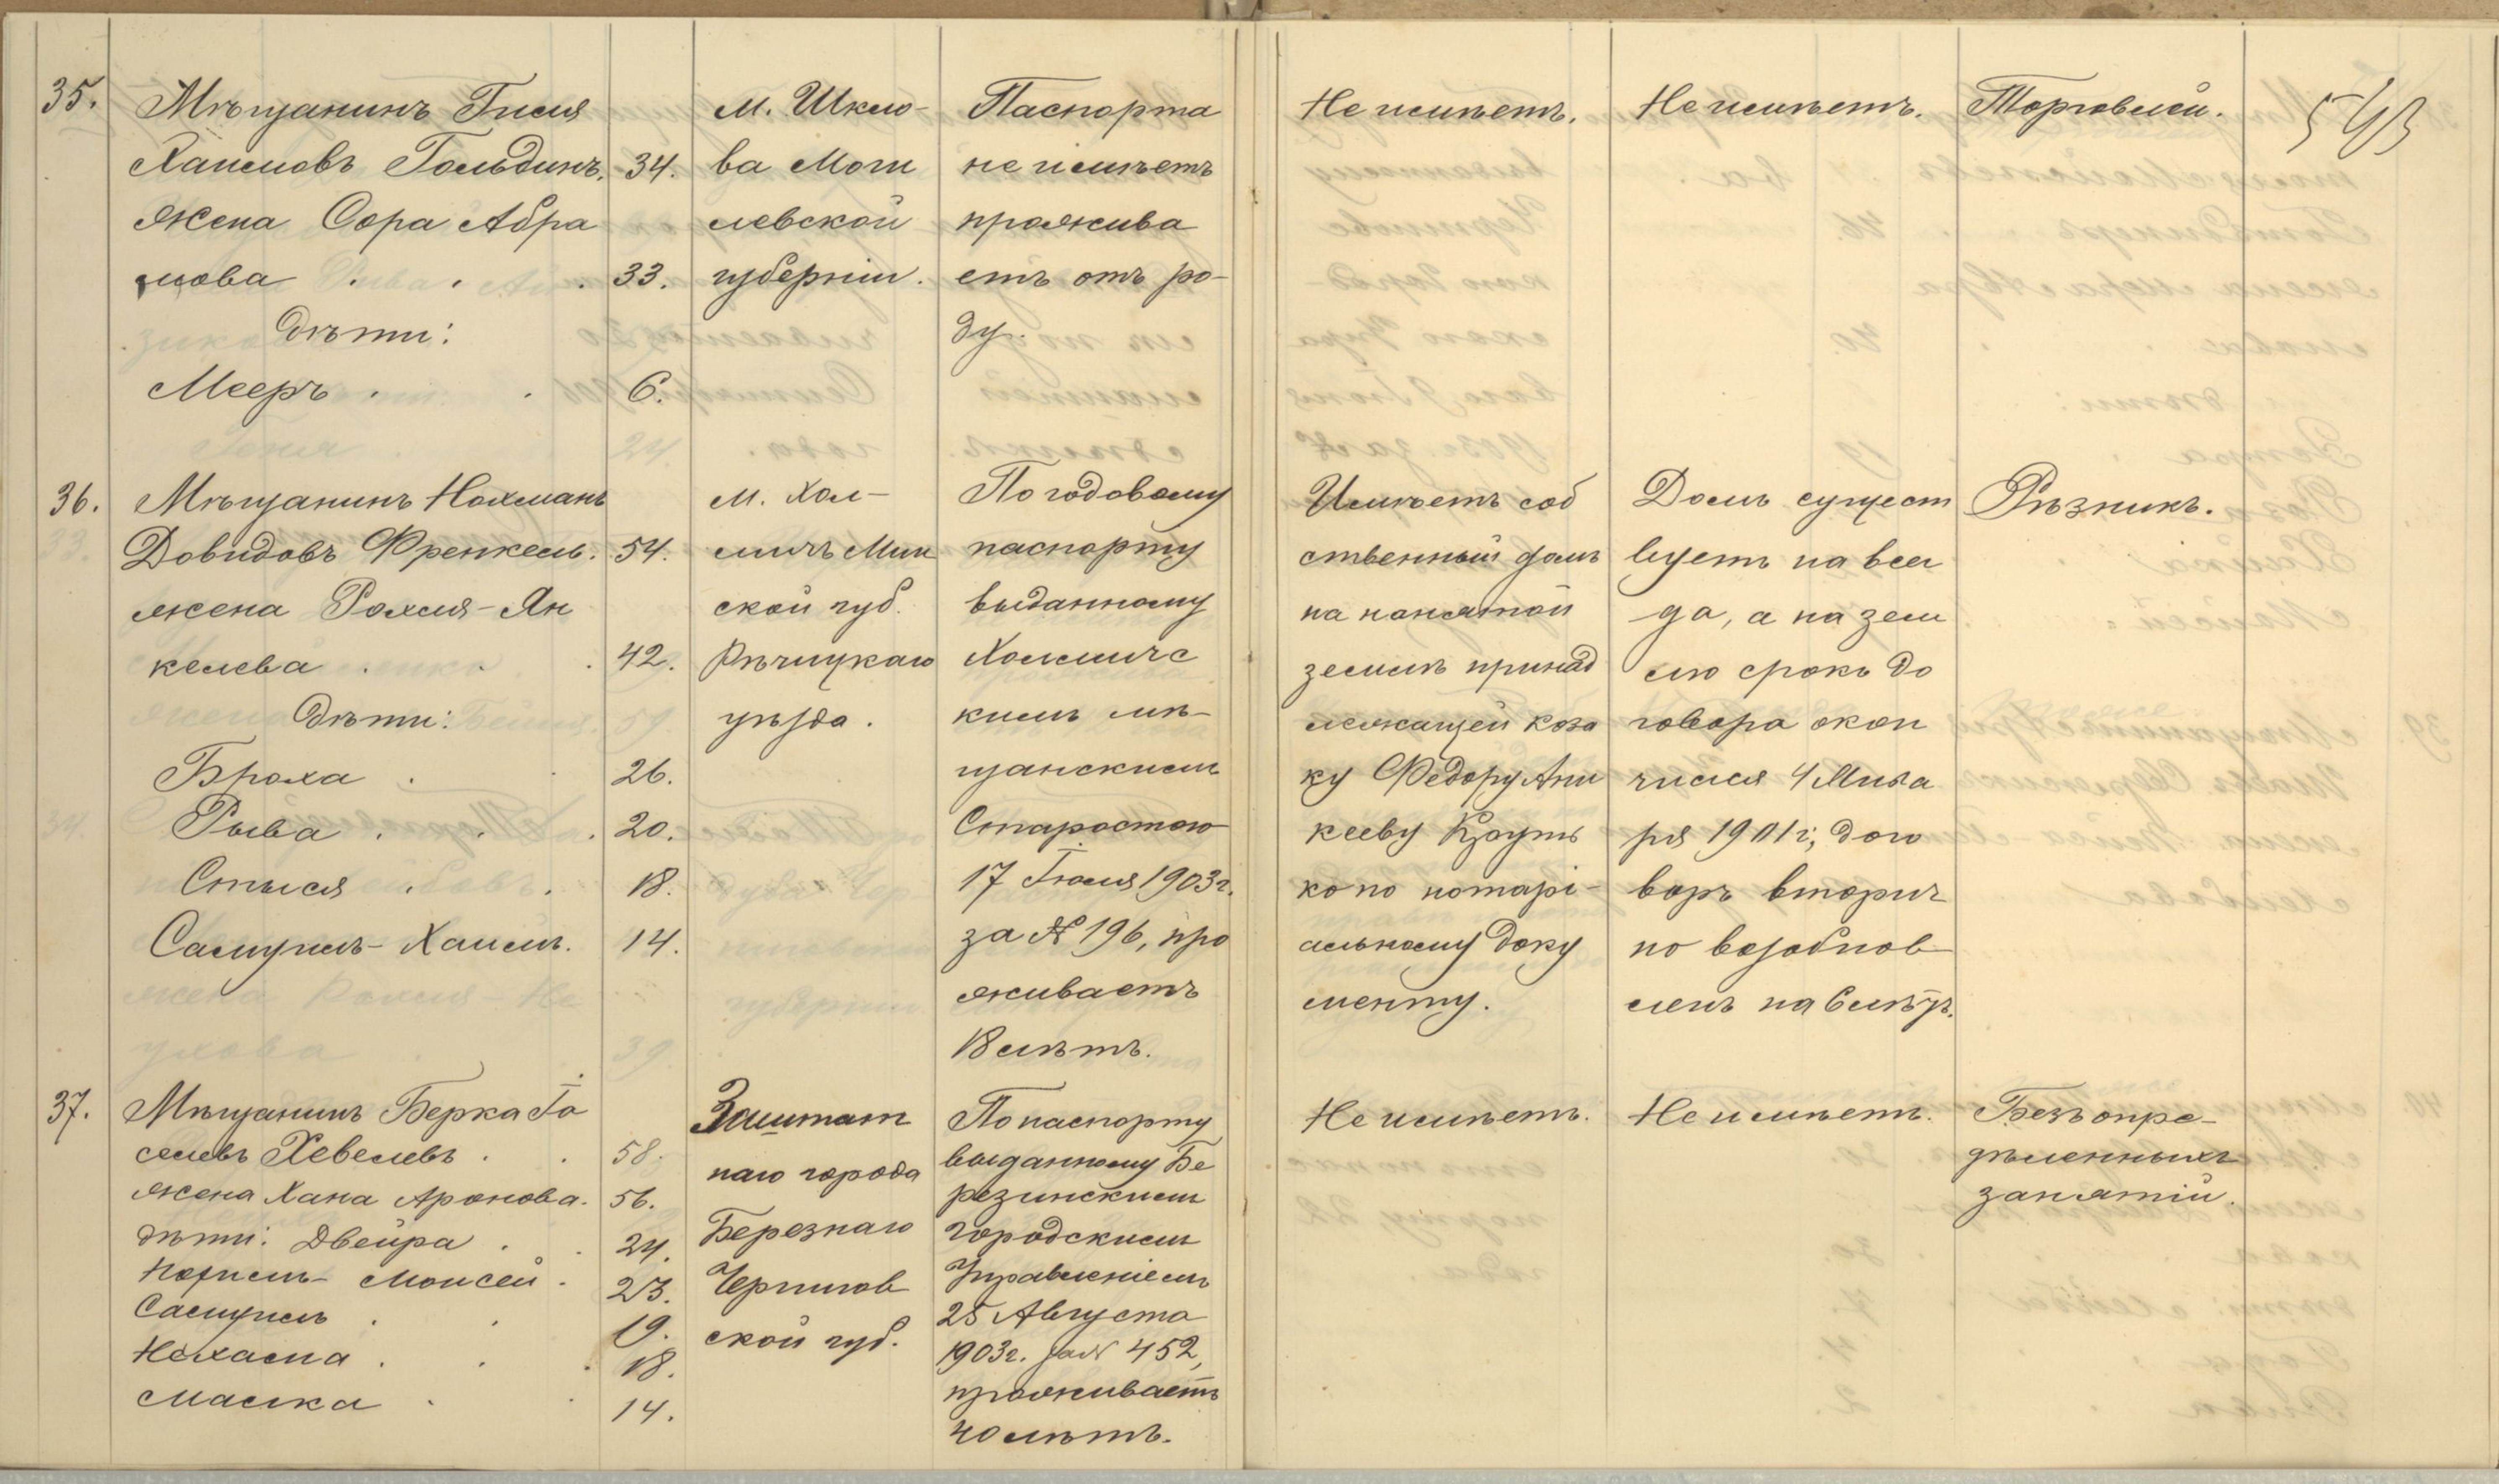 35.
Мѣщанинъ Гиля
Хаимовъ Гольдинъ. 34.
жена Сора Абра
мова . . . 33.
дѣти:
Мееръ . . 6.
м. Шкло-
ва Моги
левской
губерніи.
Паспорта
не имѣетъ
прожива
етъ отъ ро-
ду.
Не имѣетъ.
Не имѣетъ.
Торговлей.
543
36.
Мѣщанинъ Нохманъ
Довидовъ Френкель. 54.
жена Рохля-Ян
келева . . . 42.
дѣти:
Броха . . 26.
Рыва . . . 20.
Стыся . . 18.
Самуилъ-Хаимъ. 14.
м. Хол-
мичъ Мин
ской губ.
Рѣчицкаго
уѣзда.
По годовому
паспорту
выданному
Холмичс
кимъ мѣ-
щанскимъ
Старостою
17 Іюля 1903 г.
за № 196, про
живаетъ
18 лѣтъ.
Имѣетъ соб
ственный домъ
на нанятой
землѣ принад
лежащей коза
ку Федору Ани
кееву
ко по нотарі-
альному доку
менту.
Домъ сущест
вуетъ на всег
да, а на зем
лю срокъ до
говора окон
чился 4
ря 1901 г., дого
воръ вторич
но возобнов
ленъ на 6 лѣтъ.
Рѣзникъ.
37.
Мѣщанинъ Берка Іо
селевъ Хевелевъ . . 58.
жена Хана Аронова. 56.
дѣти: Двейра . . 24.
Моисей . 23.
Самуилъ . . 19.
Нехама . . . 18.
Малка . . 14.
Заштат
наго города
Березнаго
Чернигов
ской губ.
По паспорту
выданному Бе
резинскимъ
городскимъ
Управленіемъ
25 Августа
1903 г. за № 452,
проживаетъ
40 лѣтъ.
Не имѣетъ.
Не имѣетъ.
Безъ опре-
дѣленныхъ
занятій.